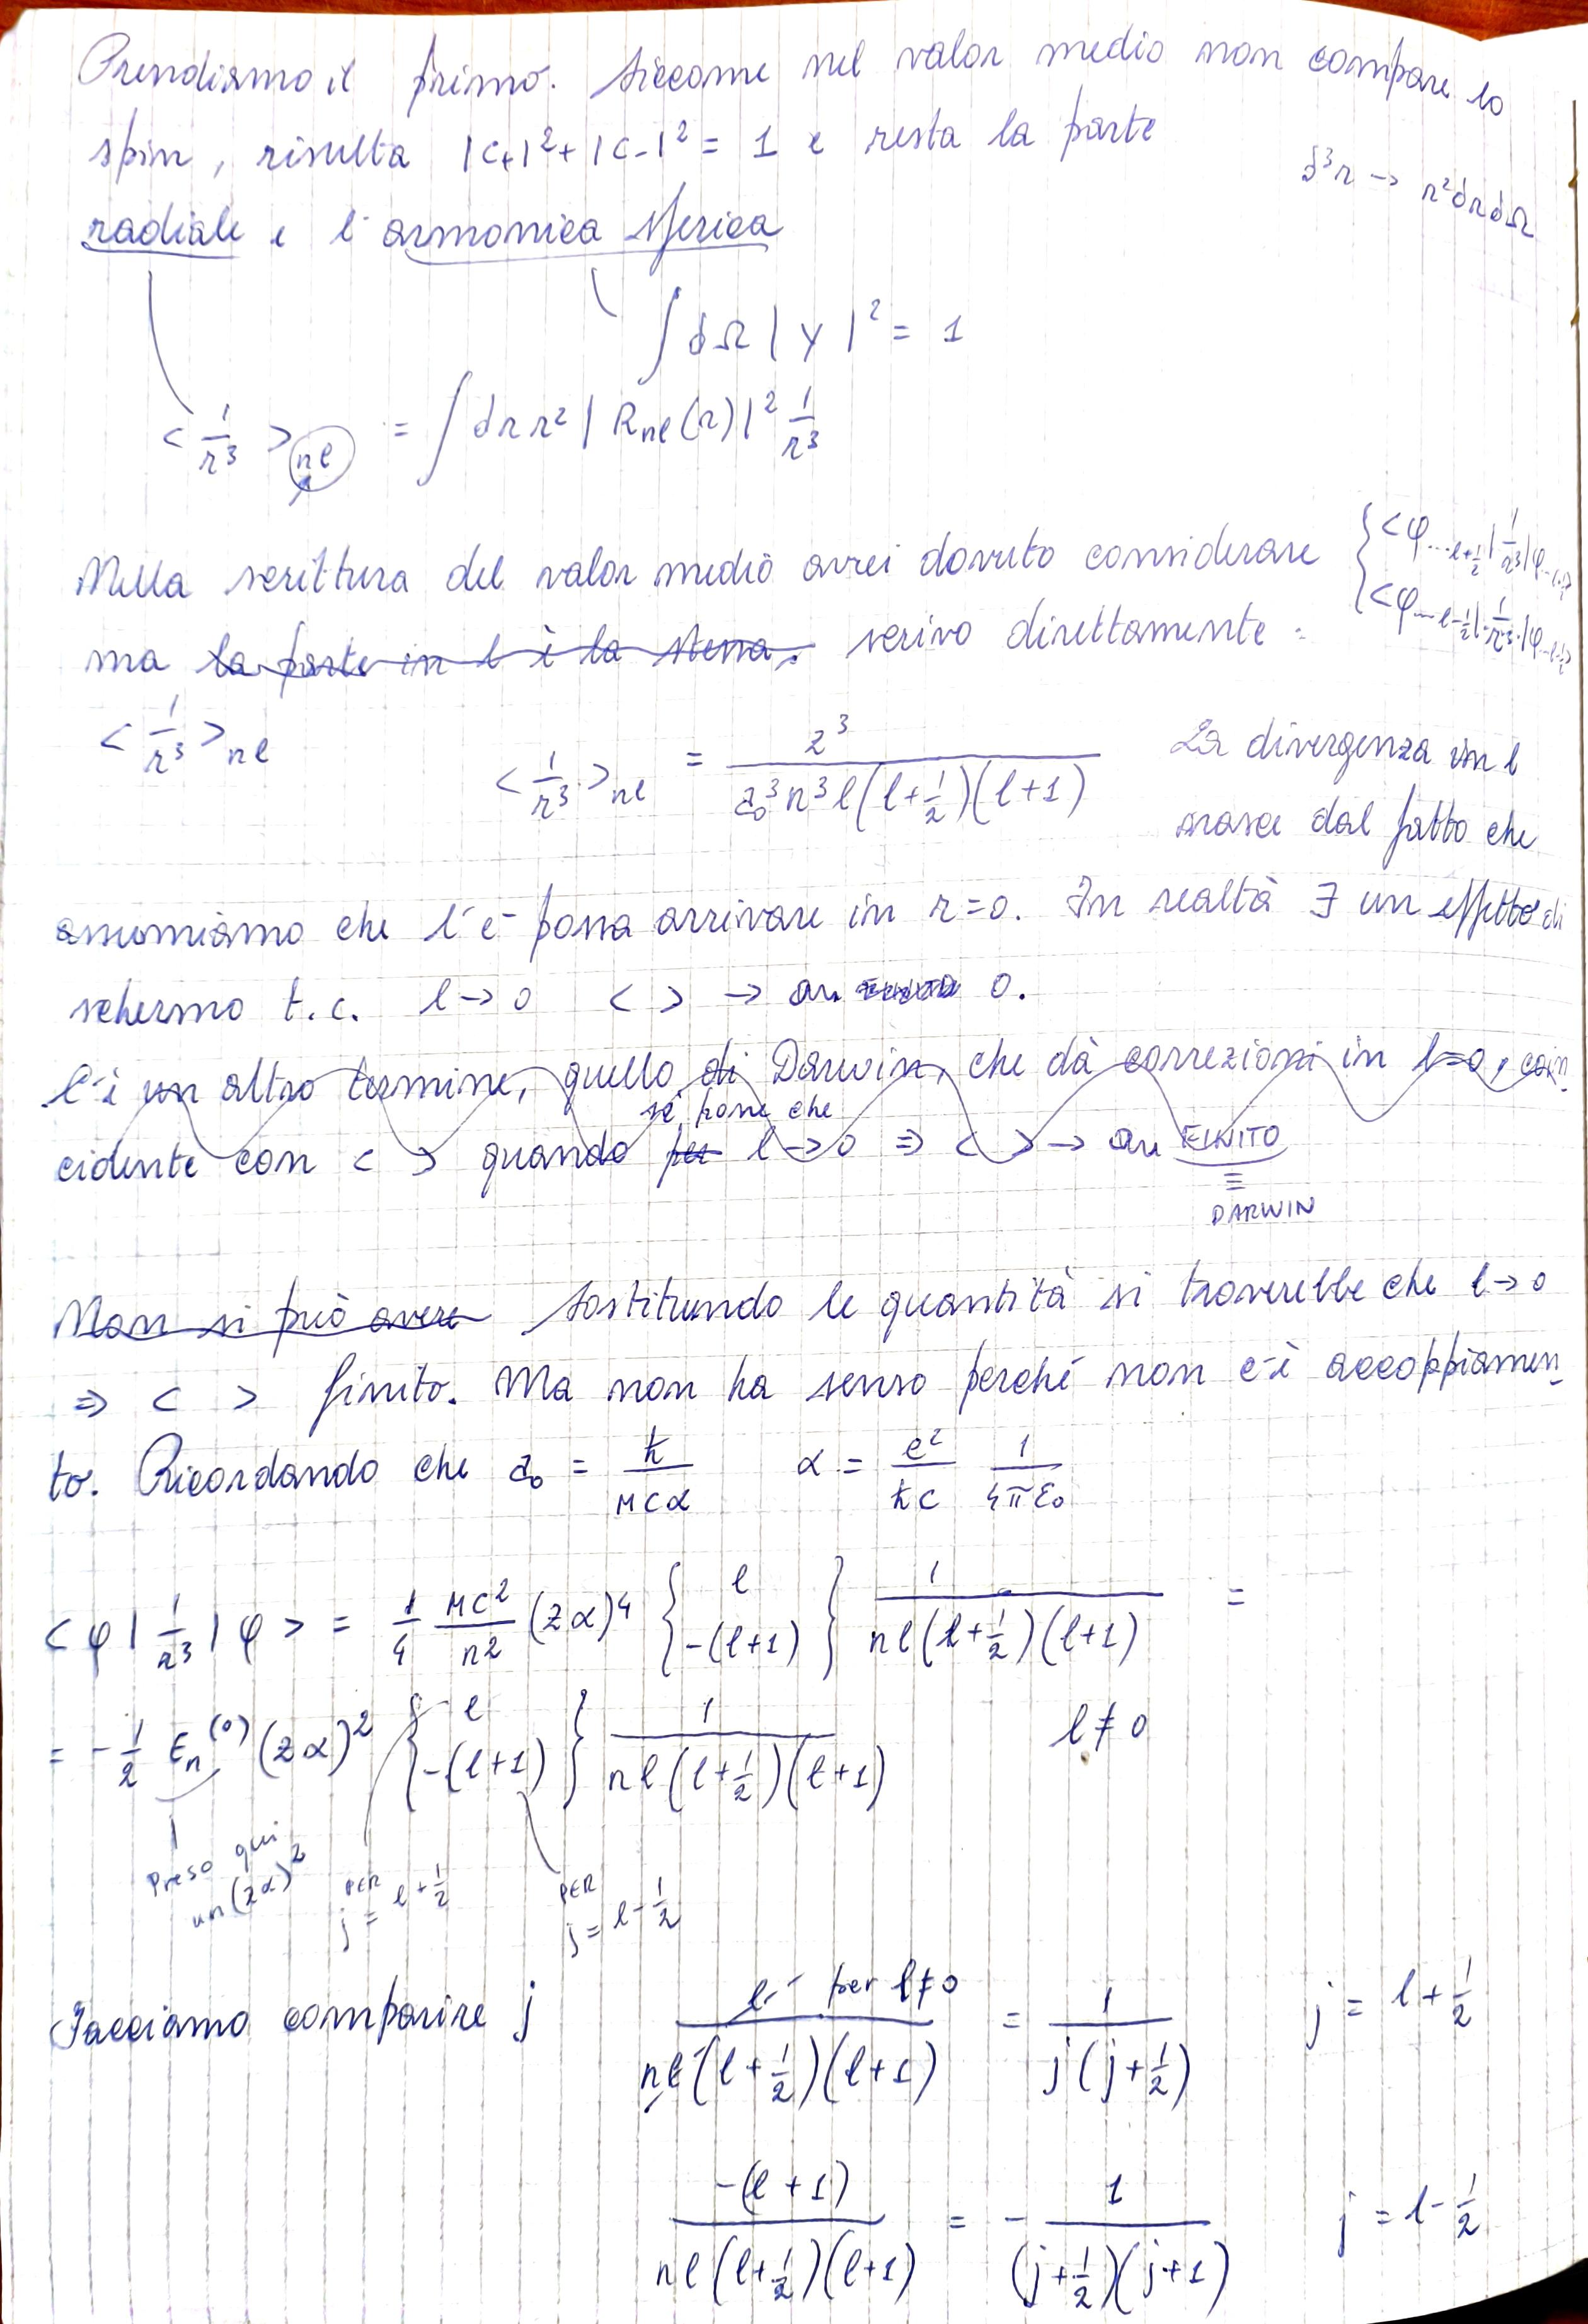 Prendiamo il primo. Siccome nel valor medio non compare lo
spin, risulta |C+|² + |C-|² = 1 e resta la parte
d³r → r² dr dΩ
radiale e l'armonica sferica
∫ dΩ | Y |² = 1
< 1/r³ >nl = ∫ dr r² | Rnl(r)|² 1/r³
Nella scrittura del valor medio avrei dovuto considerare { <φ...l+1/2 | 1/r³ | φ...
<φ...l-1/2 | 1/r³ | φ...
ma la parte in l è la stessa. scrivo direttamente:
< 1/r³ >nl
< 1/r³ >nl = z³ / a₀³ n³ l (l+1/2)(l+1) La divergenza in l
nasce dal fatto che
assumiamo che l'e⁻ possa arrivare in r=0. In realtà ∃ un effetto di
schermo t.c. l→0 < > → 0.
C'è un altro termine, quello di Darwin, che dà correzioni in l=0, coin
si pone che
cidente con < > quando per l→0 ⇒ < > → FINITO
≡
DARWIN
Non si può avere Sostituendo le quantità si troverebbe che l→0
⇒ < > finito. Ma non ha senso perché non c'è accoppiamen_
to. Ricordando che a₀ = ħ / μcα α = e²/ħc 1/4πε₀
< φ | 1/r³ | φ > = 1/4 μc²/n² (zα)⁴ { l ; -(l+1) } 1 / n l (l+1/2)(l+1) =
= - 1/2 En⁽⁰⁾ (zα)² { l ; -(l+1) } 1 / n l (l+1/2)(l+1) l ≠ 0
Preso qui
un (zα)²
PER
j = l + 1/2
PER
j = l - 1/2
Facciamo comparire j
l per l≠0 / n l (l+1/2)(l+1) = 1 / j (j+1/2) j = l + 1/2
-(l+1) / n l (l+1/2)(l+1) = - 1 / (j+1/2)(j+1) j = l - 1/2